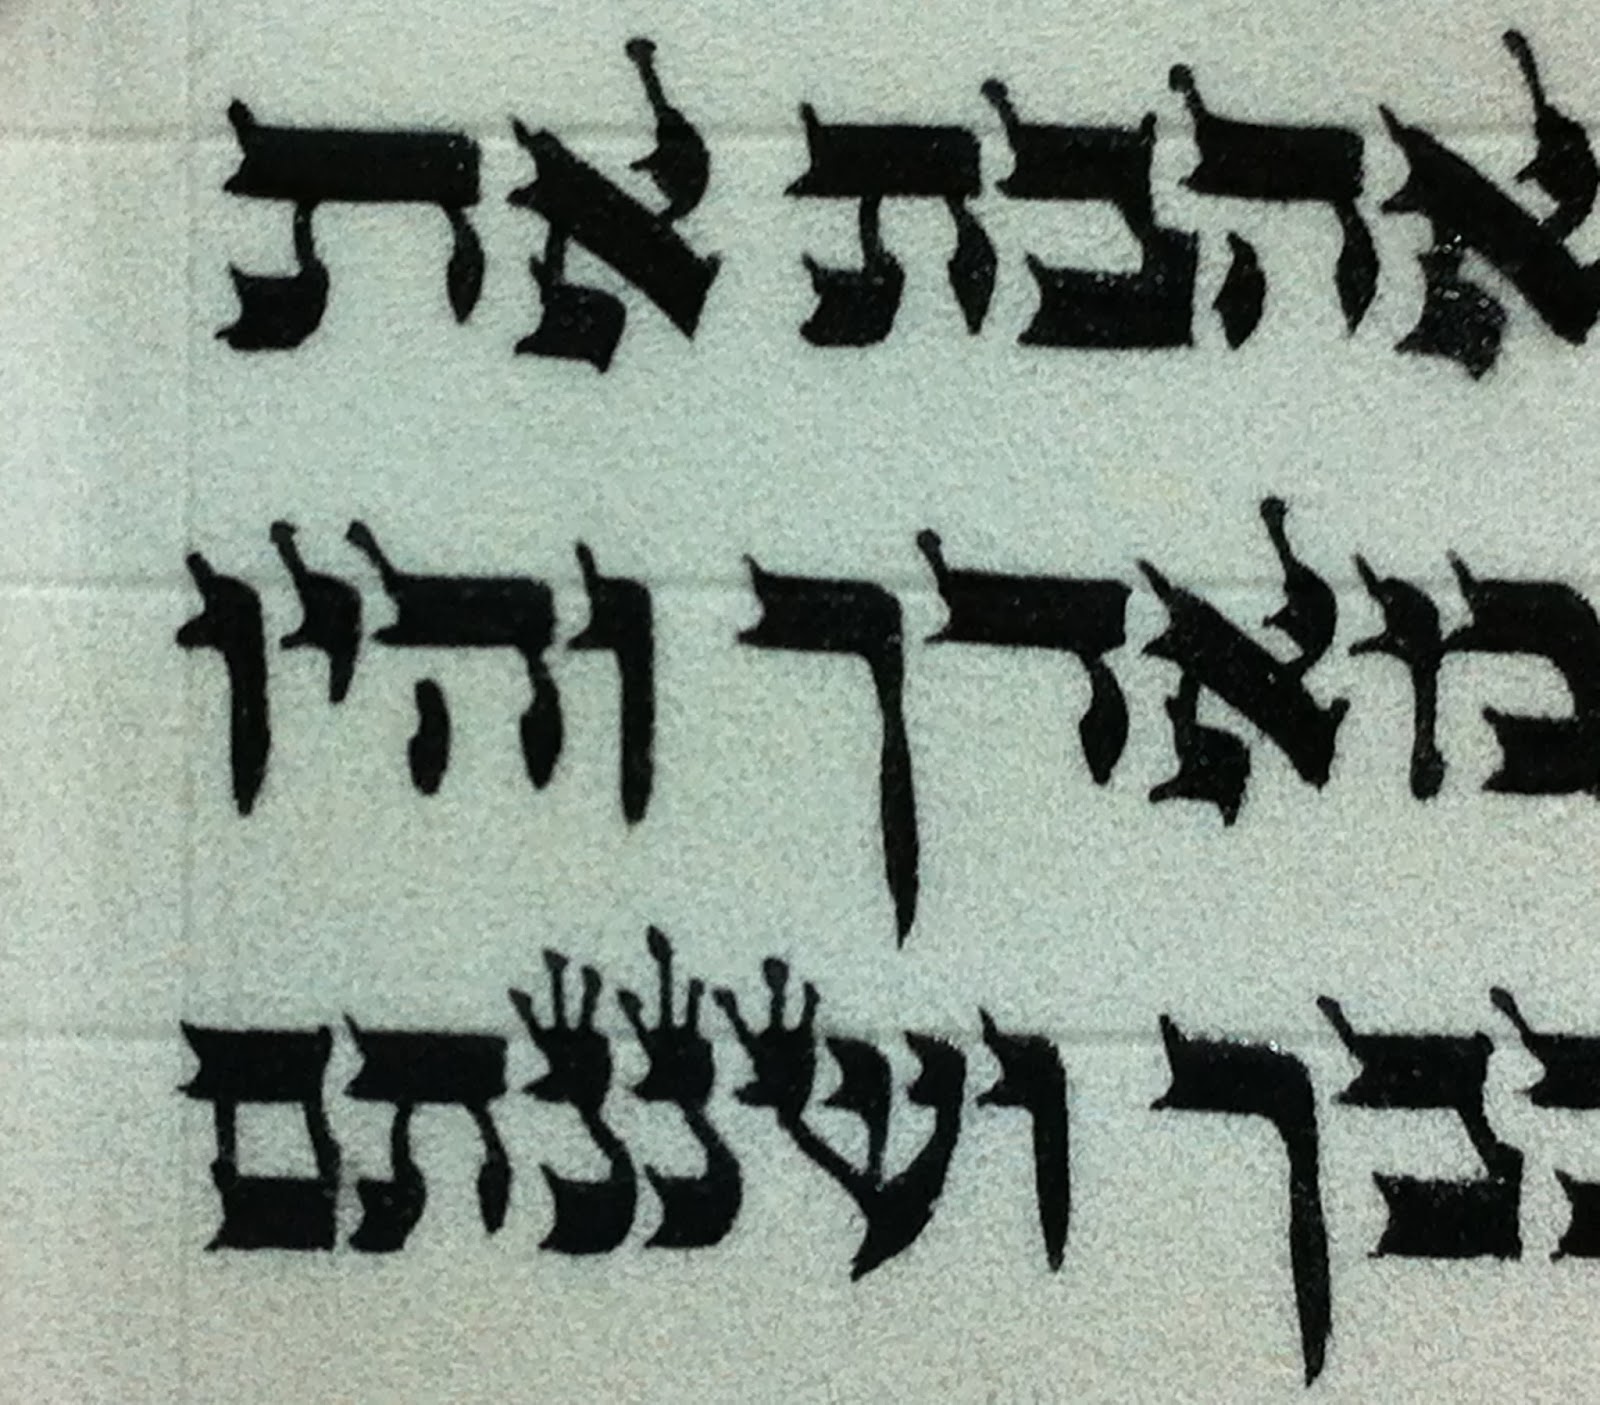 אהבת את
מאדך והיו
בבך ושננתם